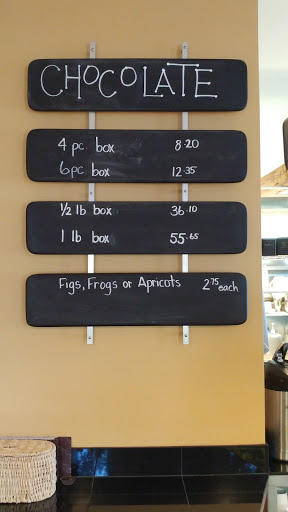 CHOCOLATE
4 pc. box 8.20
6 pc. box 12.35
1/2 lb box 36.10
1 lb box 55.65
Figs, Frogs or Apricots 2.75 each